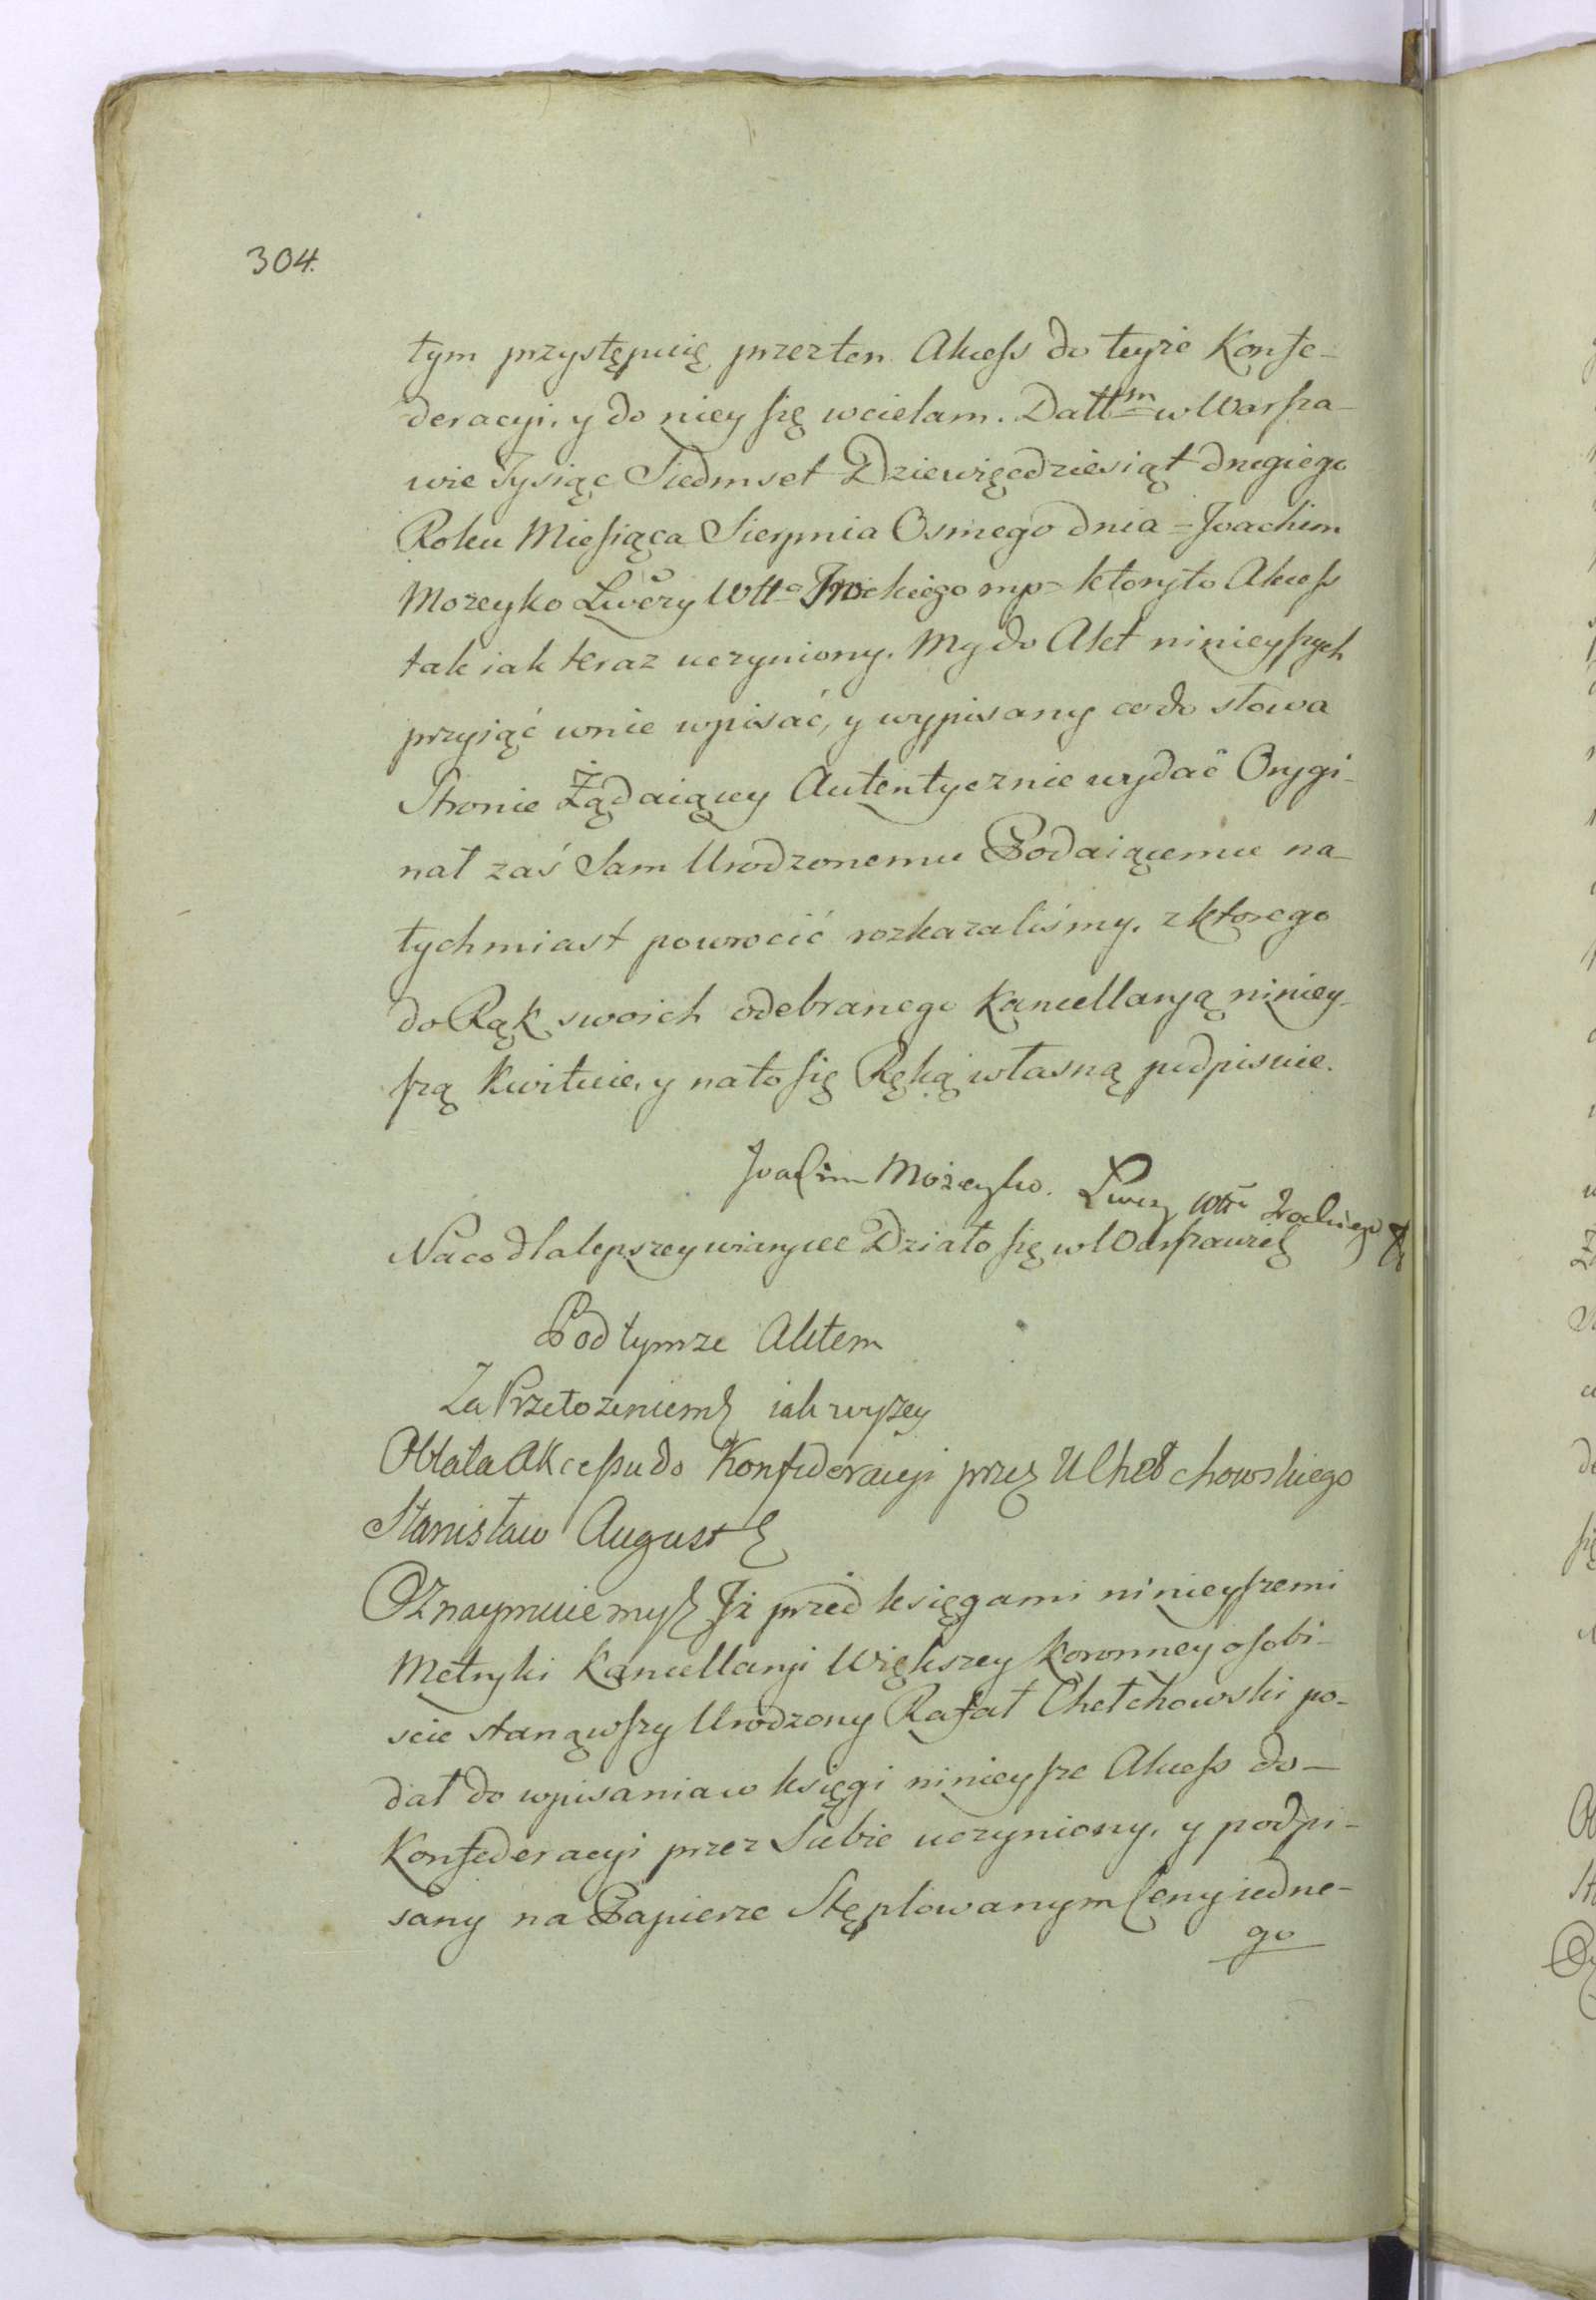 304.
tym przystępuię przez ten Akcess do teyże Konfe-
deracyi, y do niey się wcielam. Datt<sup>m</sup> w Warsza-
wie Tysiąc Siedmset Dziewięcdziesiąt drugiego
Roku Miesiąca Sierpnia Osmego dnia = Joachim
Mozeyko Łwczy Wtt<sup>a</sup> Trockiego mp = ktoryto Akcess
tak iak teraz uczyniony. My do Akt ninieyszych
przyiąć wnie wpisać, y wypisany co do słowa
Stronie Żądaiącey Autentycznie wydać Orygi-
nał zaś Sam Urodzonemu Podaiącemu na-
tychmiast powrocić rozkazaliśmy. z ktorego
do Rąk swoich odebranego Kancellaryą niniey-
szą kwituie, y na to się Ręką własną podpisuie.
Joachim Możeyko. Łwczy Wttw Trockiego
Na co dla lepszey wiary etc Działo się w Warszawie
Pod tymze Aktem
Za Przełożeniem iak wyzey
Oblata Akcessu do Konfederacyi przez U Chełchowskiego
Stanisław August
Oznaymuiemy Iż przed księgami ninieyszemi
Metryki Kancellaryi Większey Koronney osobi-
scie stanąwszy Urodzony Rafał Chełchowski po-
dał do wpisania w księgi ninieysze Akcess do -
Konfederacyi przez Siebie uczyniony. y podpi-
sany na Papierze Stęplowanym Ceny iedne-
go